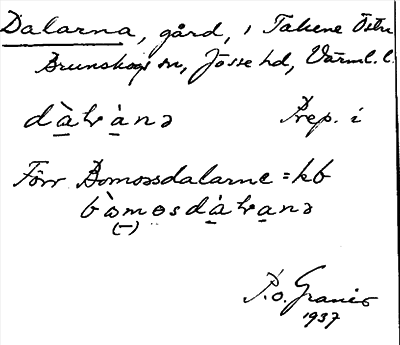 Dalarna, gård, i Takene Östra
Brunskogs sn, Jösse hd, Värml. l.
dàḷnə Prep. i
Förr Bomossdalarne = kb
P.o. Granér
1937